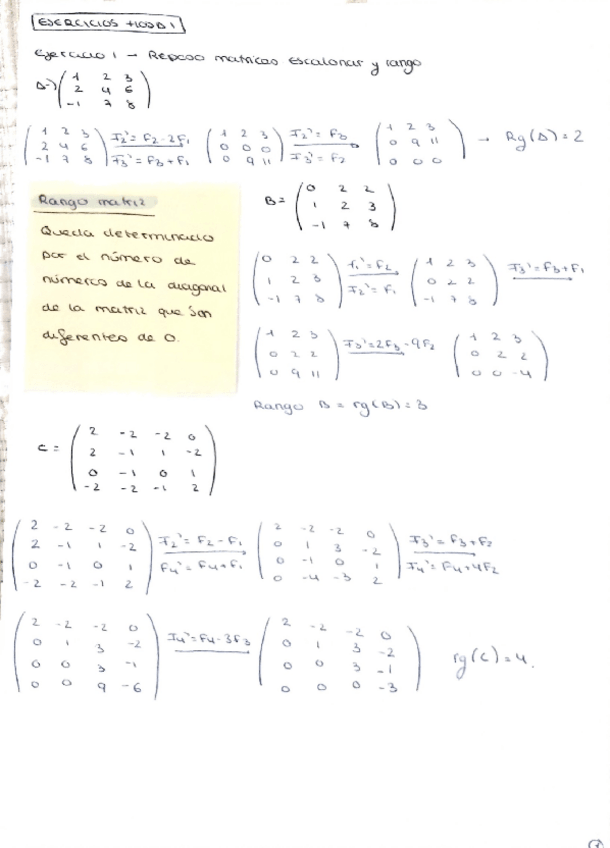 EJERCICIOS HOJA 1
Ejercicio 1 → Repaso matrices Escalonar y rango
A→ ( 1 2 3
2 4 6
-1 7 8 )
( 1 2 3
2 4 6
-1 7 8 ) F2' = F2 - 2F1
F3' = F3 + F1
( 1 2 3
0 0 0
0 9 11 ) F2' = F3
F3' = F2
( 1 2 3
0 9 11
0 0 0 ) → Rg(A) = 2
Rango matriz
Queda determinado
por el número de
números de la diagonal
de la matriz que son
diferentes de 0.
B = ( 0 2 2
1 2 3
-1 7 8 )
( 0 2 2
1 2 3
-1 7 8 ) F1' = F2
F2' = F1
( 1 2 3
0 2 2
-1 7 8 ) F3' = F3 + F1
( 1 2 3
0 2 2
0 9 11 ) F3' = 2F3 - 9F2
( 1 2 3
0 2 2
0 0 -4 )
Rango B = rg(B) = 3
C = ( 2 -2 -2 0
2 -1 1 -2
0 -1 0 1
-2 -2 -1 2 )
( 2 -2 -2 0
2 -1 1 -2
0 -1 0 1
-2 -2 -1 2 ) F2' = F2 - F1
F4' = F4 + F1
( 2 -2 -2 0
0 1 3 -2
0 -1 0 1
0 -4 -3 2 ) F3' = F3 + F2
F4' = F4 + 4F2
( 2 -2 -2 0
0 1 3 -2
0 0 3 -1
0 0 9 -6 ) F4' = F4 - 3F3
( 2 -2 -2 0
0 1 3 -2
0 0 3 -1
0 0 0 -3 ) rg(C) = 4.